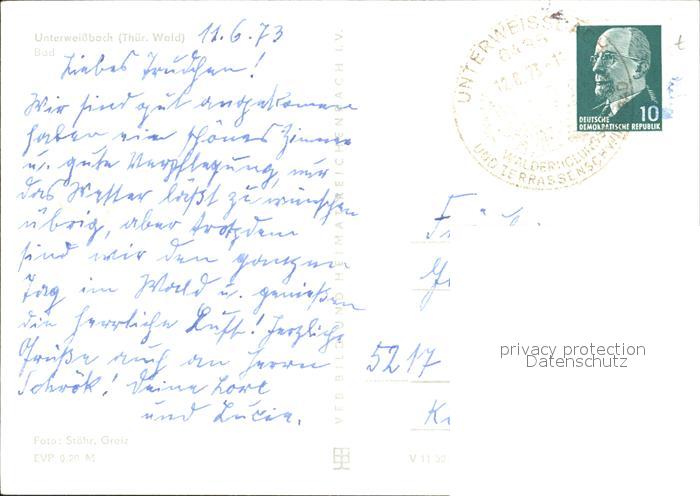 Unterweißbach (Thür. Wald)
Bad
11.6.73
Liebes Trudchen!
Wir sind gut angekommen
haben ein schönes Zimmer
u. gute Verpflegung, nur
das Wetter läßt zu wünschen
übrig, aber trotzdem
sind wir den ganzen
Tag im Wald u. genießen
die herrliche Luft! Herzliche
Grüße auch an Herrn
Schrök! Deine Lore
und Lucie.
Foto: Stöhr, Greiz
EVP 0,20 M
VEB BILD UND HEIMAT REICHENBACH I. V.
V 11 30
UNTERWEISSBACH
12.6.73
UND TERRASSENSCHWIMMBAD
10
DEUTSCHE
DEMOKRATISCHE REPUBLIK
5217
privacy protection
Datenschutz